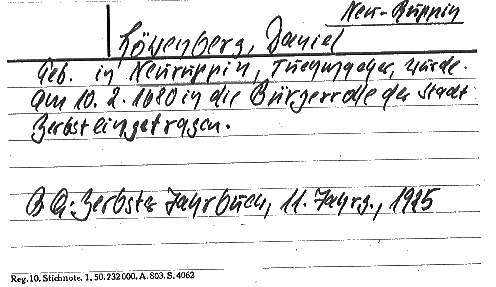 Neu-Ruppin
Löwenberg, Daniel
Geb. in Neuruppin, Tuchmacher, wurde
am 10. 2. 1680 in die Bürgerrolle der Stadt
Zerbst eingetragen.
B Q: Zerbster Jahrbuch, 11. Jahrg., 1925
Reg. 10. Stichnote. 1. 50. 232000. A. 803. S. 4062